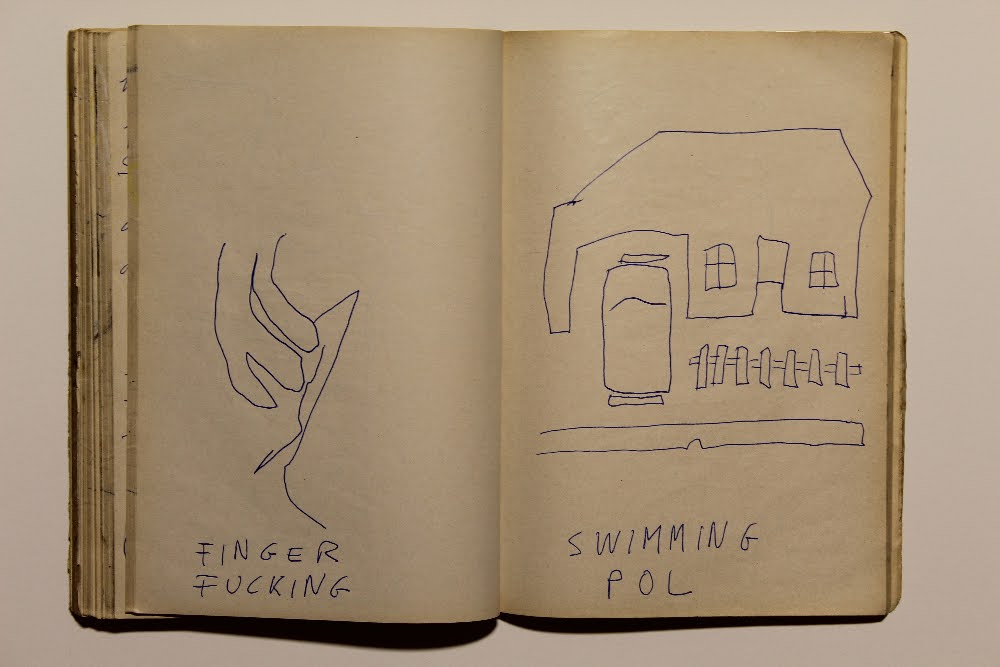 FINGER
FUCKING
SWIMMING
POL